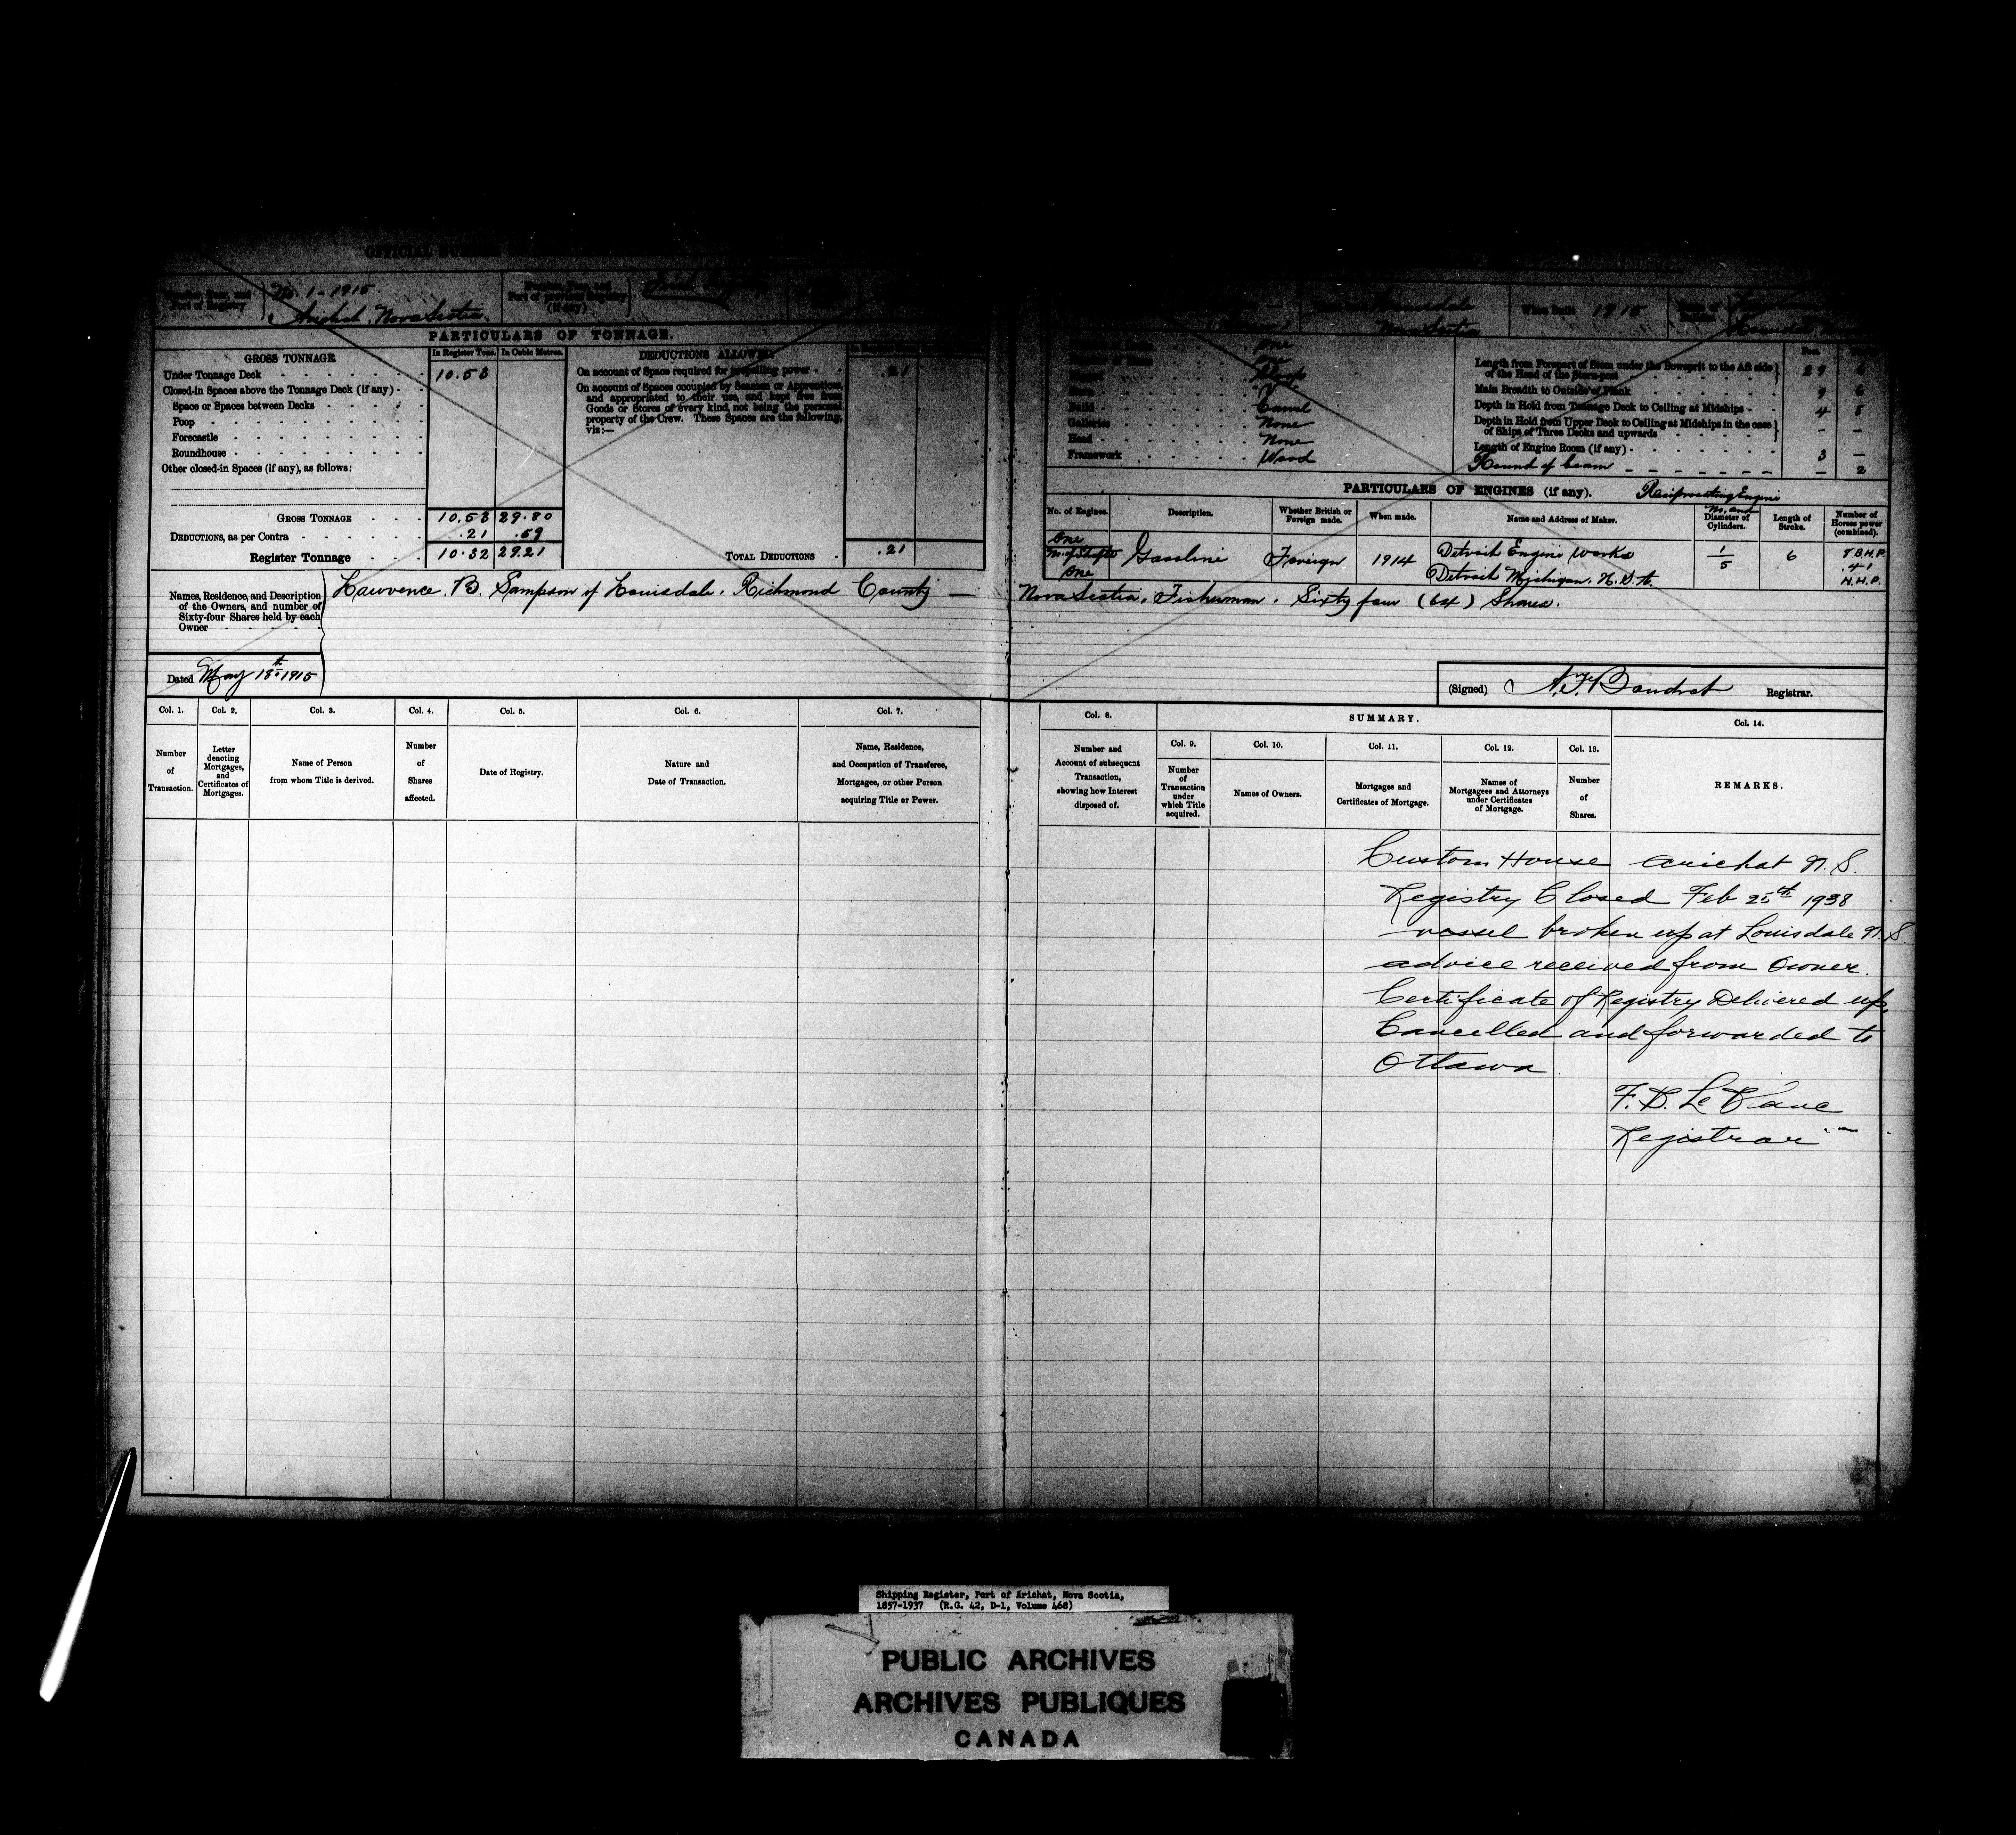 OFFICIAL NUMBER
Port of Registry
No. 1 - 1915.
Arichat, Nova Scotia.
Nova Scotia
When Built 1915
PARTICULARS OF TONNAGE.
GROSS TONNAGE In Register Tons. In Cubic Metres.
Under Tonnage Deck 10.53
Closed-in Spaces above the Tonnage Deck (if any)
Space or Spaces between Decks
Poop
Forecastle
Roundhouse
Other closed-in Spaces (if any), as follows:
GROSS TONNAGE 10.53 29.80
DEDUCTIONS, as per Contra .21 .59
Register Tonnage 10.32 29.21
DEDUCTIONS ALLOWED.
On account of Space required for propelling power .21
On account of Spaces occupied by Seamen or Apprentices,
and appropriated to their use, and kept free from
Goods or Stores of every kind, not being the personal
property of the Crew. These Spaces are the following,
viz:—
TOTAL DEDUCTIONS .21
One
One
Sloop
Build Carvel
Galleries None
Head None
Framework Wood
Length from Forepart of Stem under the Bowsprit to the Aft side
of the Head of the Stern-post 29 6
Main Breadth to Outside of Plank 9 6
Depth in Hold from Tonnage Deck to Ceiling at Midships 4 8
Depth in Hold from Upper Deck to Ceiling at Midships in the case
of Ships of Three Decks and upwards — —
Length of Engine Room (if any) 3 —
Round of beam — 2
PARTICULARS OF ENGINES (if any). Reciprocating Engine
No. of Engines. Description. Whether British or Foreign made. When made. Name and Address of Maker. No. and Diameter of Cylinders. Length of Stroke. Number of Horses power (combined).
One
No of Shafts Gasoline Foreign 1914 Detroit Engine Works 1 6 8 B.H.P.
One Detroit Michigan. U.S.A. 5 .41
N.H.P.
Names, Residence, and Description
of the Owners, and number of
Sixty-four Shares held by each
Owner
Lawrence. B. Sampson of Louisdale. Richmond County — Nova Scotia, Fisherman. Sixty four (64) Shares.
Dated May 18th 1915
(Signed) A. F. Boudrot Registrar.
Col. 1. Col. 2. Col. 3. Col. 4. Col. 5. Col. 6. Col. 7.
Number of Transaction.
Letter denoting Mortgages, and Certificates of Mortgages.
Name of Person from whom Title is derived.
Number of Shares affected.
Date of Registry.
Nature and Date of Transaction.
Name, Residence, and Occupation of Transferee, Mortgagee, or other Person acquiring Title or Power.
Col. 8. SUMMARY. Col. 14.
Col. 9. Col. 10. Col. 11. Col. 12. Col. 13.
Number and Account of subsequent Transaction, showing how Interest disposed of.
Number of Transaction under which Title acquired.
Names of Owners.
Mortgages and Certificates of Mortgage.
Names of Mortgagees and Attorneys under Certificates of Mortgage.
Number of Shares.
REMARKS.
Custom House Arichat N.S.
Registry Closed Feb 25th 1938
vessel broken up at Louisdale N.S.
advice received from Owner.
Certificate of Registry Delivered up,
Cancelled and forwarded to
Ottawa
Registrar
Shipping Register, Port of Arichat, Nova Scotia,
1857-1937 (R.G. 42, D-1, Volume 468)
PUBLIC ARCHIVES
ARCHIVES PUBLIQUES
CANADA